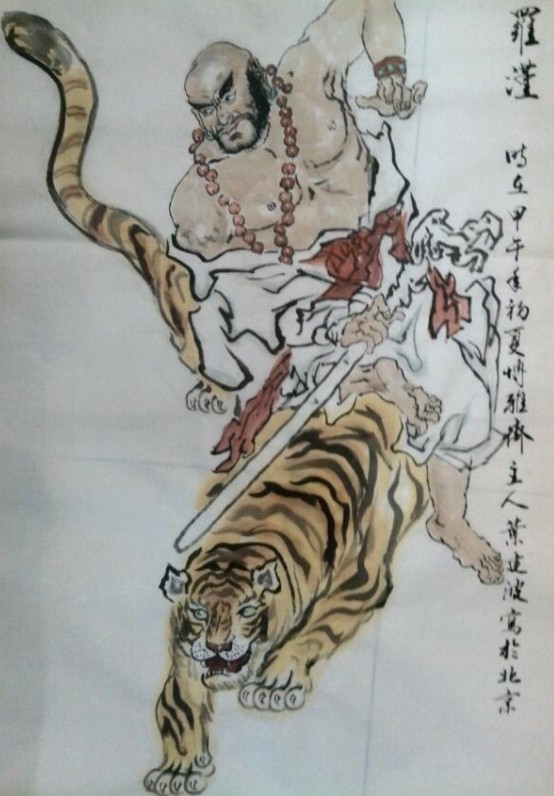 羅漢
時在甲午年初夏博雅齋主人葉建波寫於北京